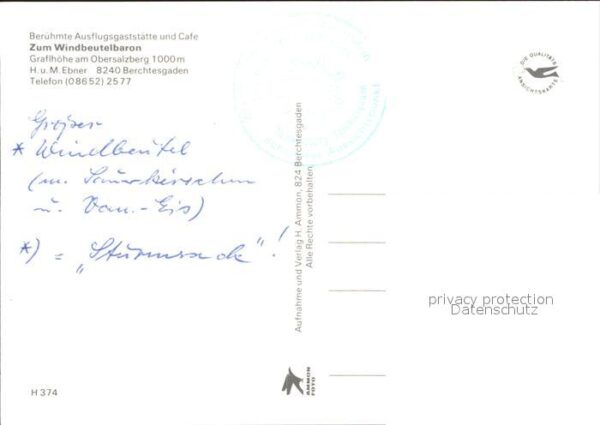 Berühmte Ausflugsgaststätte und Cafe
Zum Windbeutelbaron
Graflhöhe am Obersalzberg 1000m
H. u. M. Ebner 8240 Berchtesgaden
Telefon (08652) 2577
DIE QUALITÄTS
ANSICHTSKARTE
Großer
* Windbeutel
(m. Sauerkirschen
u. Van.-Eis)
*) = „Sturmsack"!
Aufnahme und Verlag H. Ammon, 824 Berchtesgaden
Alle Rechte vorbehalten
privacy protection
Datenschutz
AMMON
FOTO
H 374